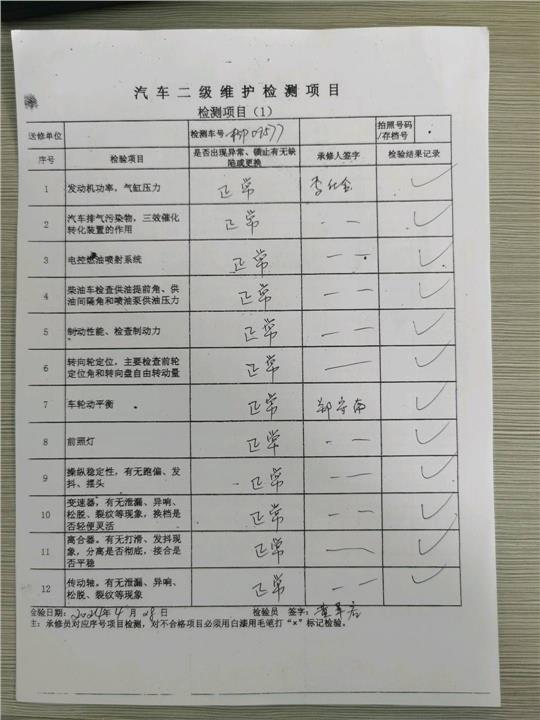 汽车二级维护检测项目
检测项目（1）
送修单位 检测车号 拍照号码/存档号
序号 检验项目 是否出现异常、锁止有无缺陷或更换 承修人签字 检验结果记录
1 发动机功率，气缸压力 正常 ✓
2 汽车排气污染物，三效催化转化装置的作用 正常 — — ✓
3 电控燃油喷射系统 正常 — — ✓
4 柴油车检查供油提前角、供油间隔角和喷油泵供油压力 正常 — — ✓
5 制动性能、检查制动力 正常 — — ✓
6 转向轮定位，主要检查前轮定位角和转向盘自由转动量 正常 — ✓
7 车轮动平衡 正常 ✓
8 前照灯 正常 — — ✓
9 操纵稳定性，有无跑偏、发抖、摆头 正常 — — ✓
10 变速器，有无泄漏、异响、松脱、裂纹等现象，换档是否轻便灵活 正常 — — ✓
11 离合器。有无打滑、发抖现象，分离是否彻底，接合是否平稳 正常 — ✓
12 传动轴，有无泄漏、异响、松脱、裂纹等现象 正常 — — ✓
金验日期：2024年4月28日 检验员 签字：
主：承修员对应序号项目检测，对不合格项目必须用白漆用毛笔打“×”标记检验。